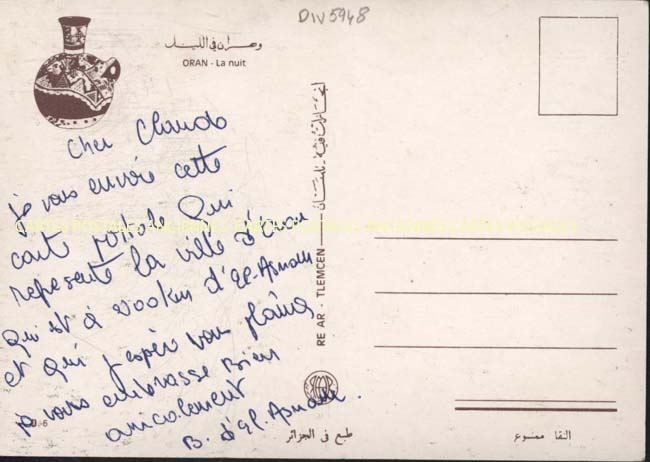 DIV5948
وهران في الليل
ORAN - La nuit
Cher Claudo
je vous envoie cette
carte postale Qui
represente la ville d'Oran
Qui est à 200km d'El-Asnam
et qui j'espère vous plaira
je vous embrasse Bien
amicalement
B. d'El-Asnam.
RE AR - TLEMCEN
D.-5
طبع في الجزائر
النقا ممنوع